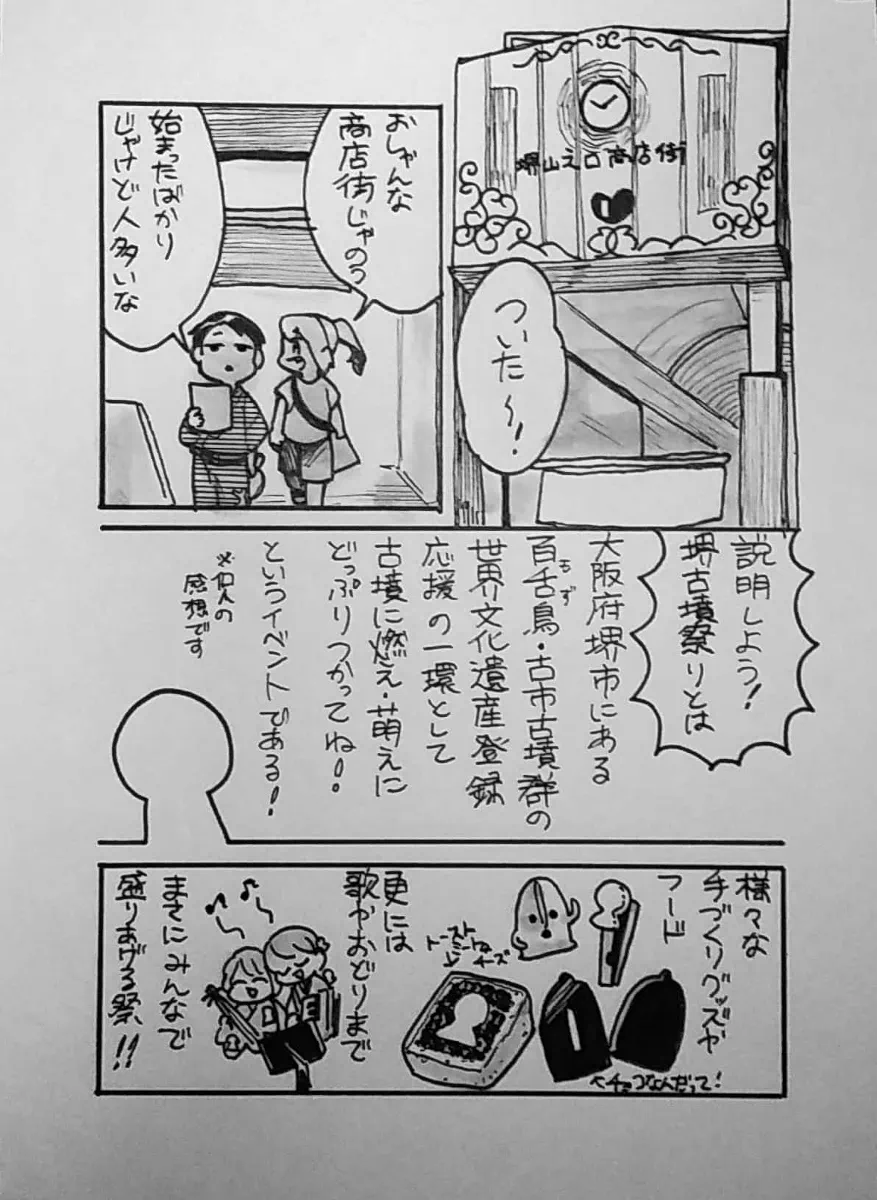 堺山之口商店街
ついた～!
おしゃんな
商店街じゃのう
始まったばかり
じゃけど人多いな
説明しよう!
堺古墳祭りとは
大阪府堺市にある
百舌鳥・古市古墳群の
もず
世界文化遺産登録
応援の一環として
古墳に燃え・萌えに
どっぷりつかってね!
というイベントである!
※個人の
感想です
様々な
手づくりグッズや
フード
トースト
チーズ
↖チョコなんだって!
更には
歌やおどりまで
まさにみんなで
盛りあげる祭!!